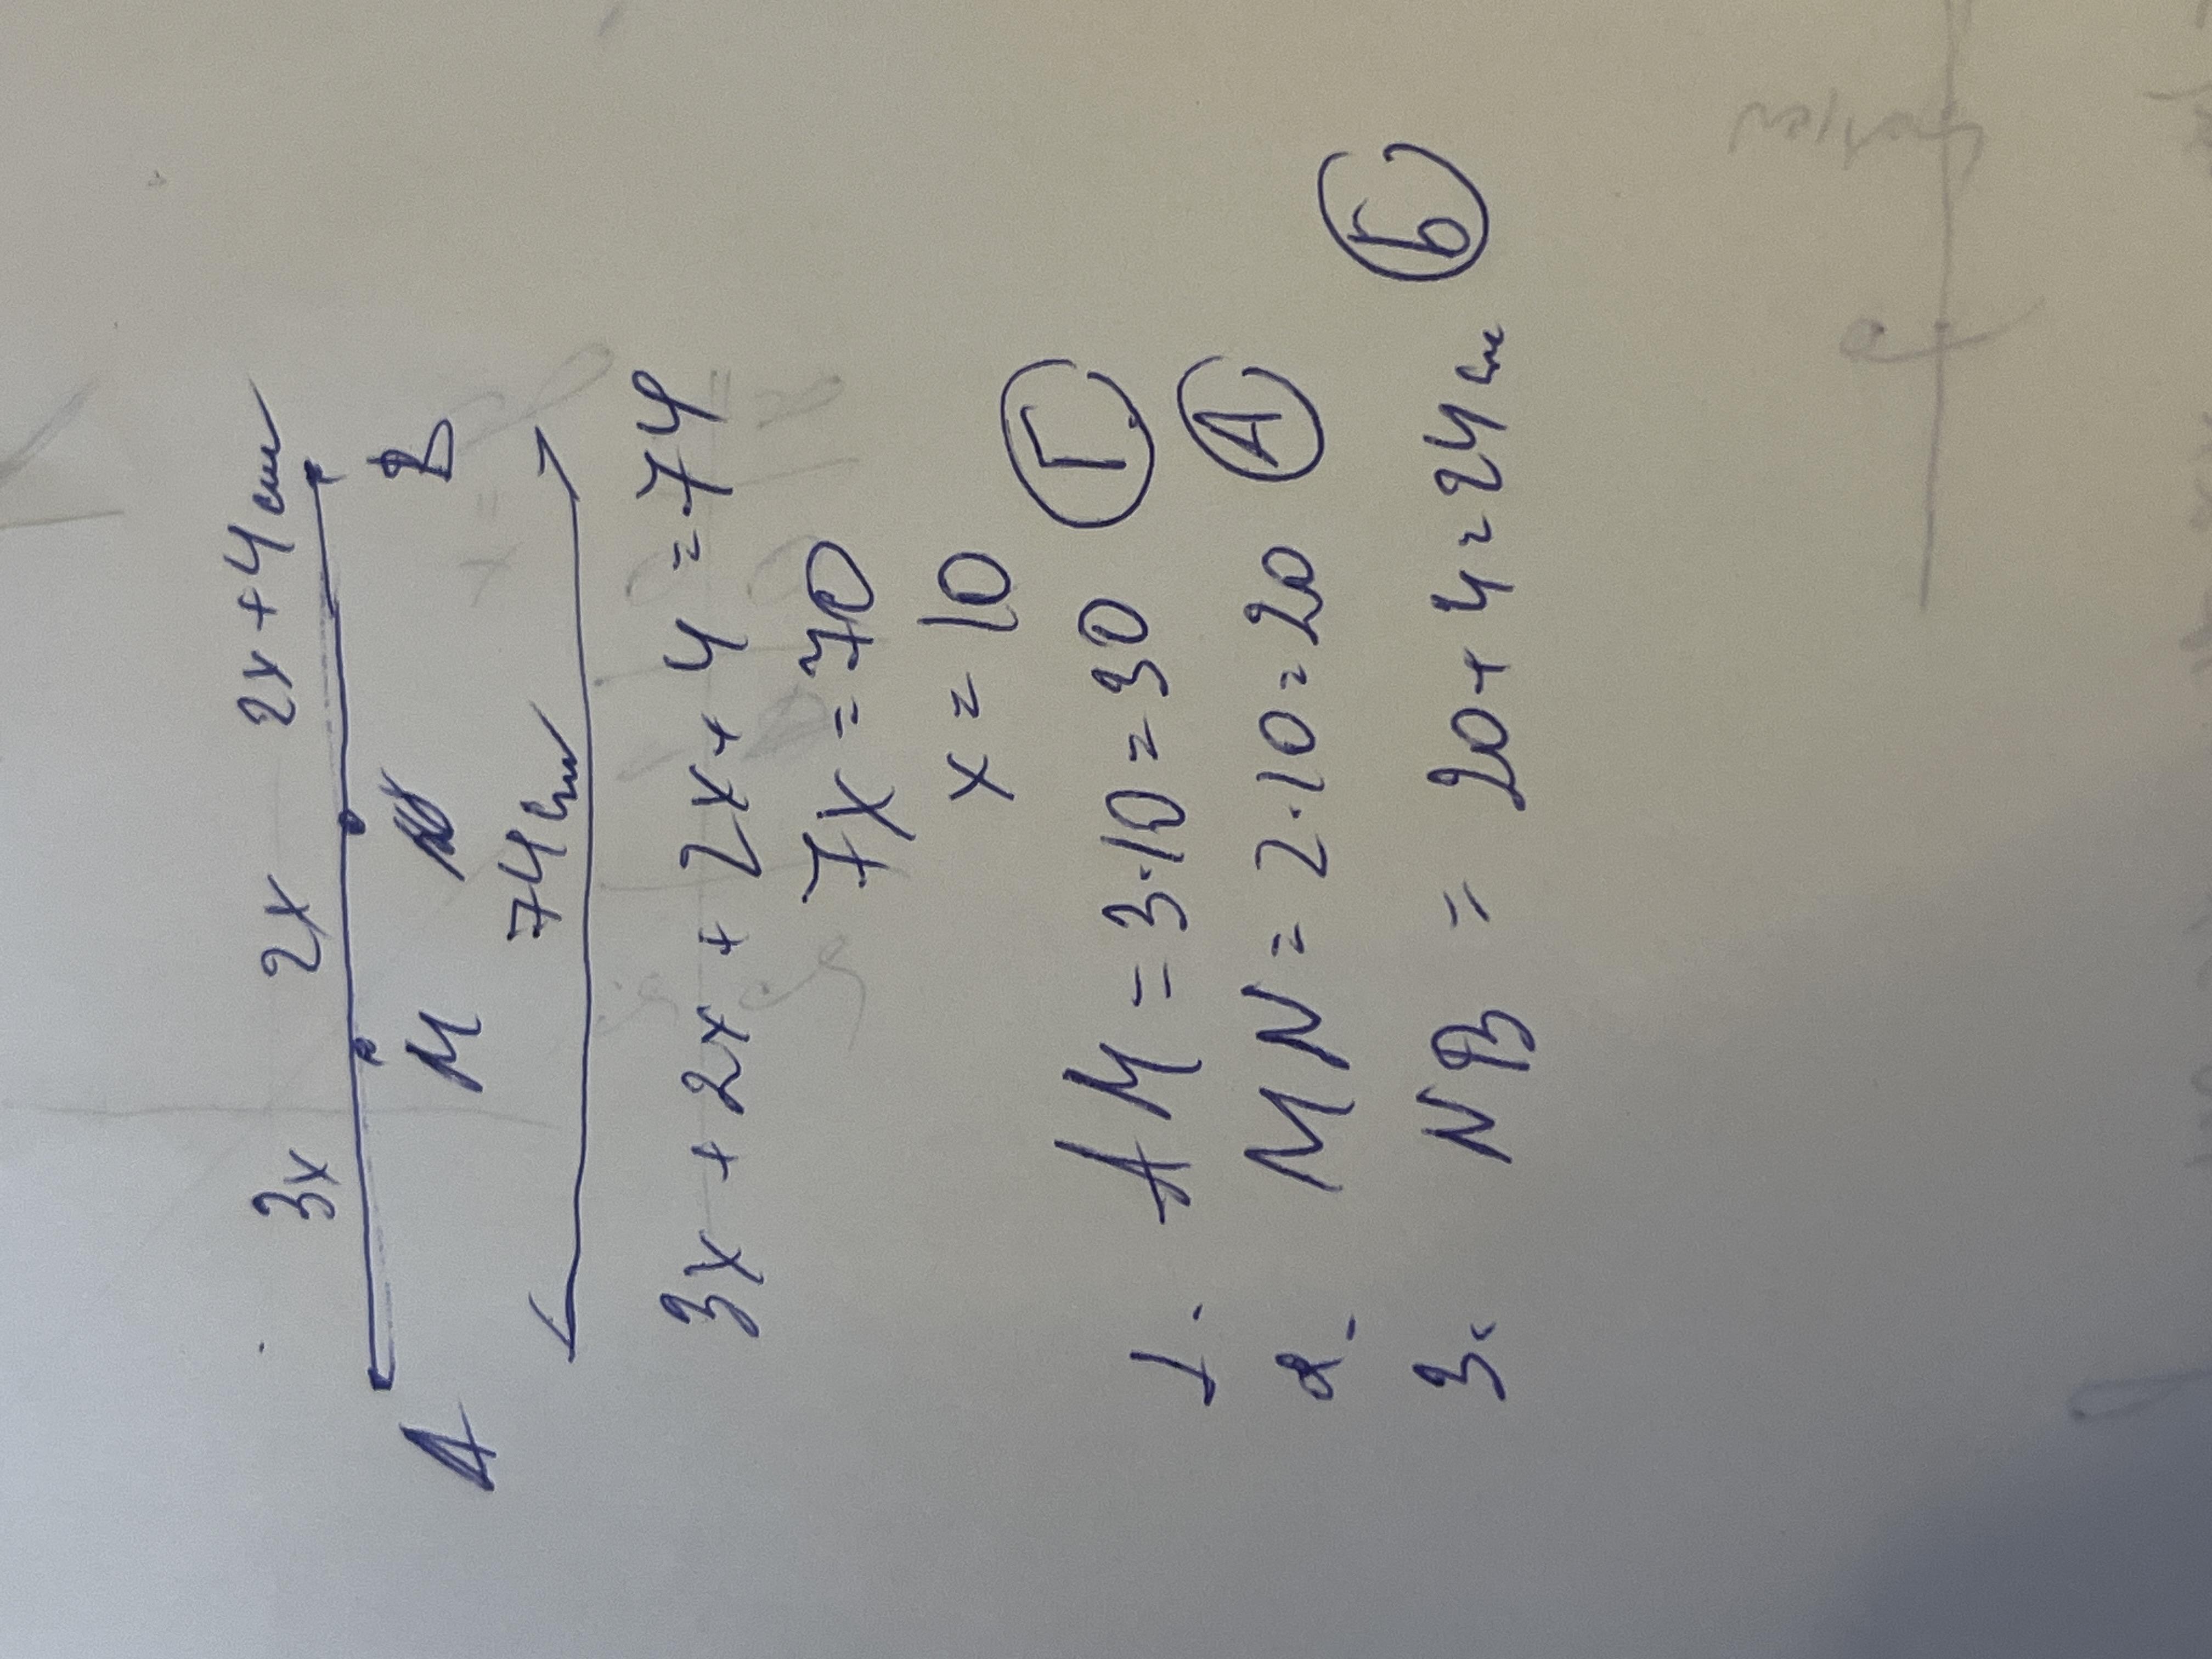 3x 2x 2x+4cm
A M N B
74cm
3x + 2x + 2x + 4 = 74
7x = 70
x = 10
1. AM = 3·10 = 30 Г
2. MN = 2·10 = 20 А
3. NB = 20 + 4 = 24 см Б